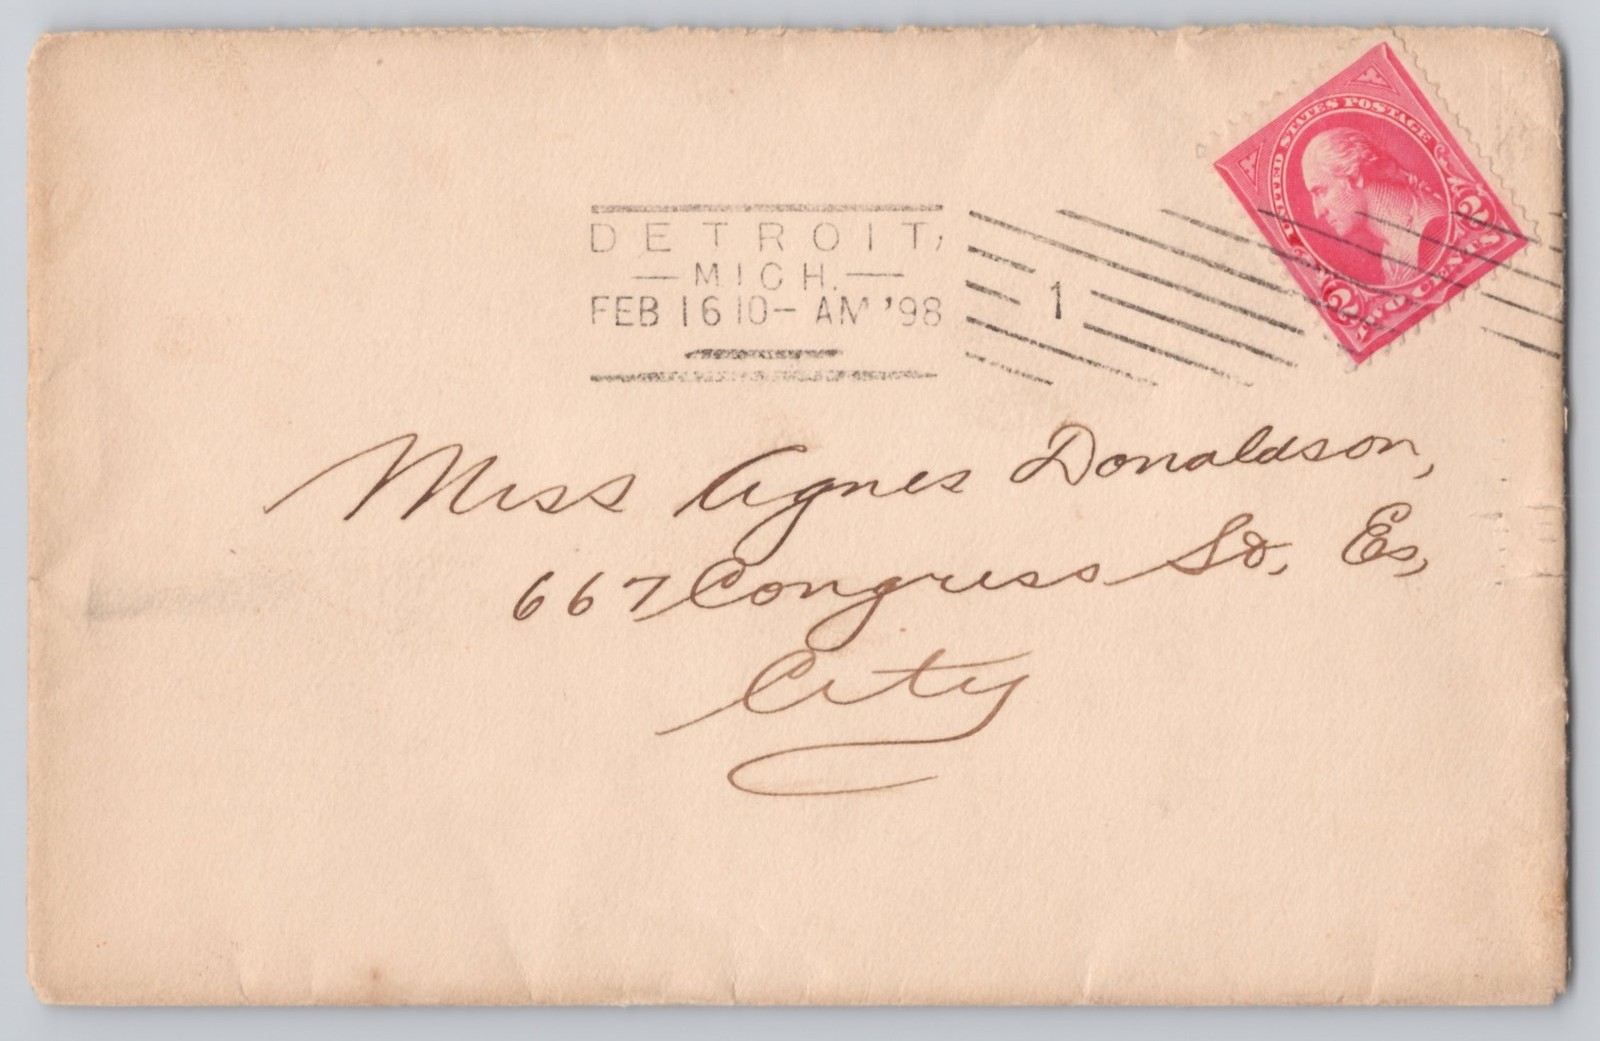 UNITED STATES POSTAGE
2 2
TWO CENTS
DETROIT,
—MICH.—
FEB 16 10- AM '98
1
Miss Agnes Donaldson,
667 Congress St, E,
City